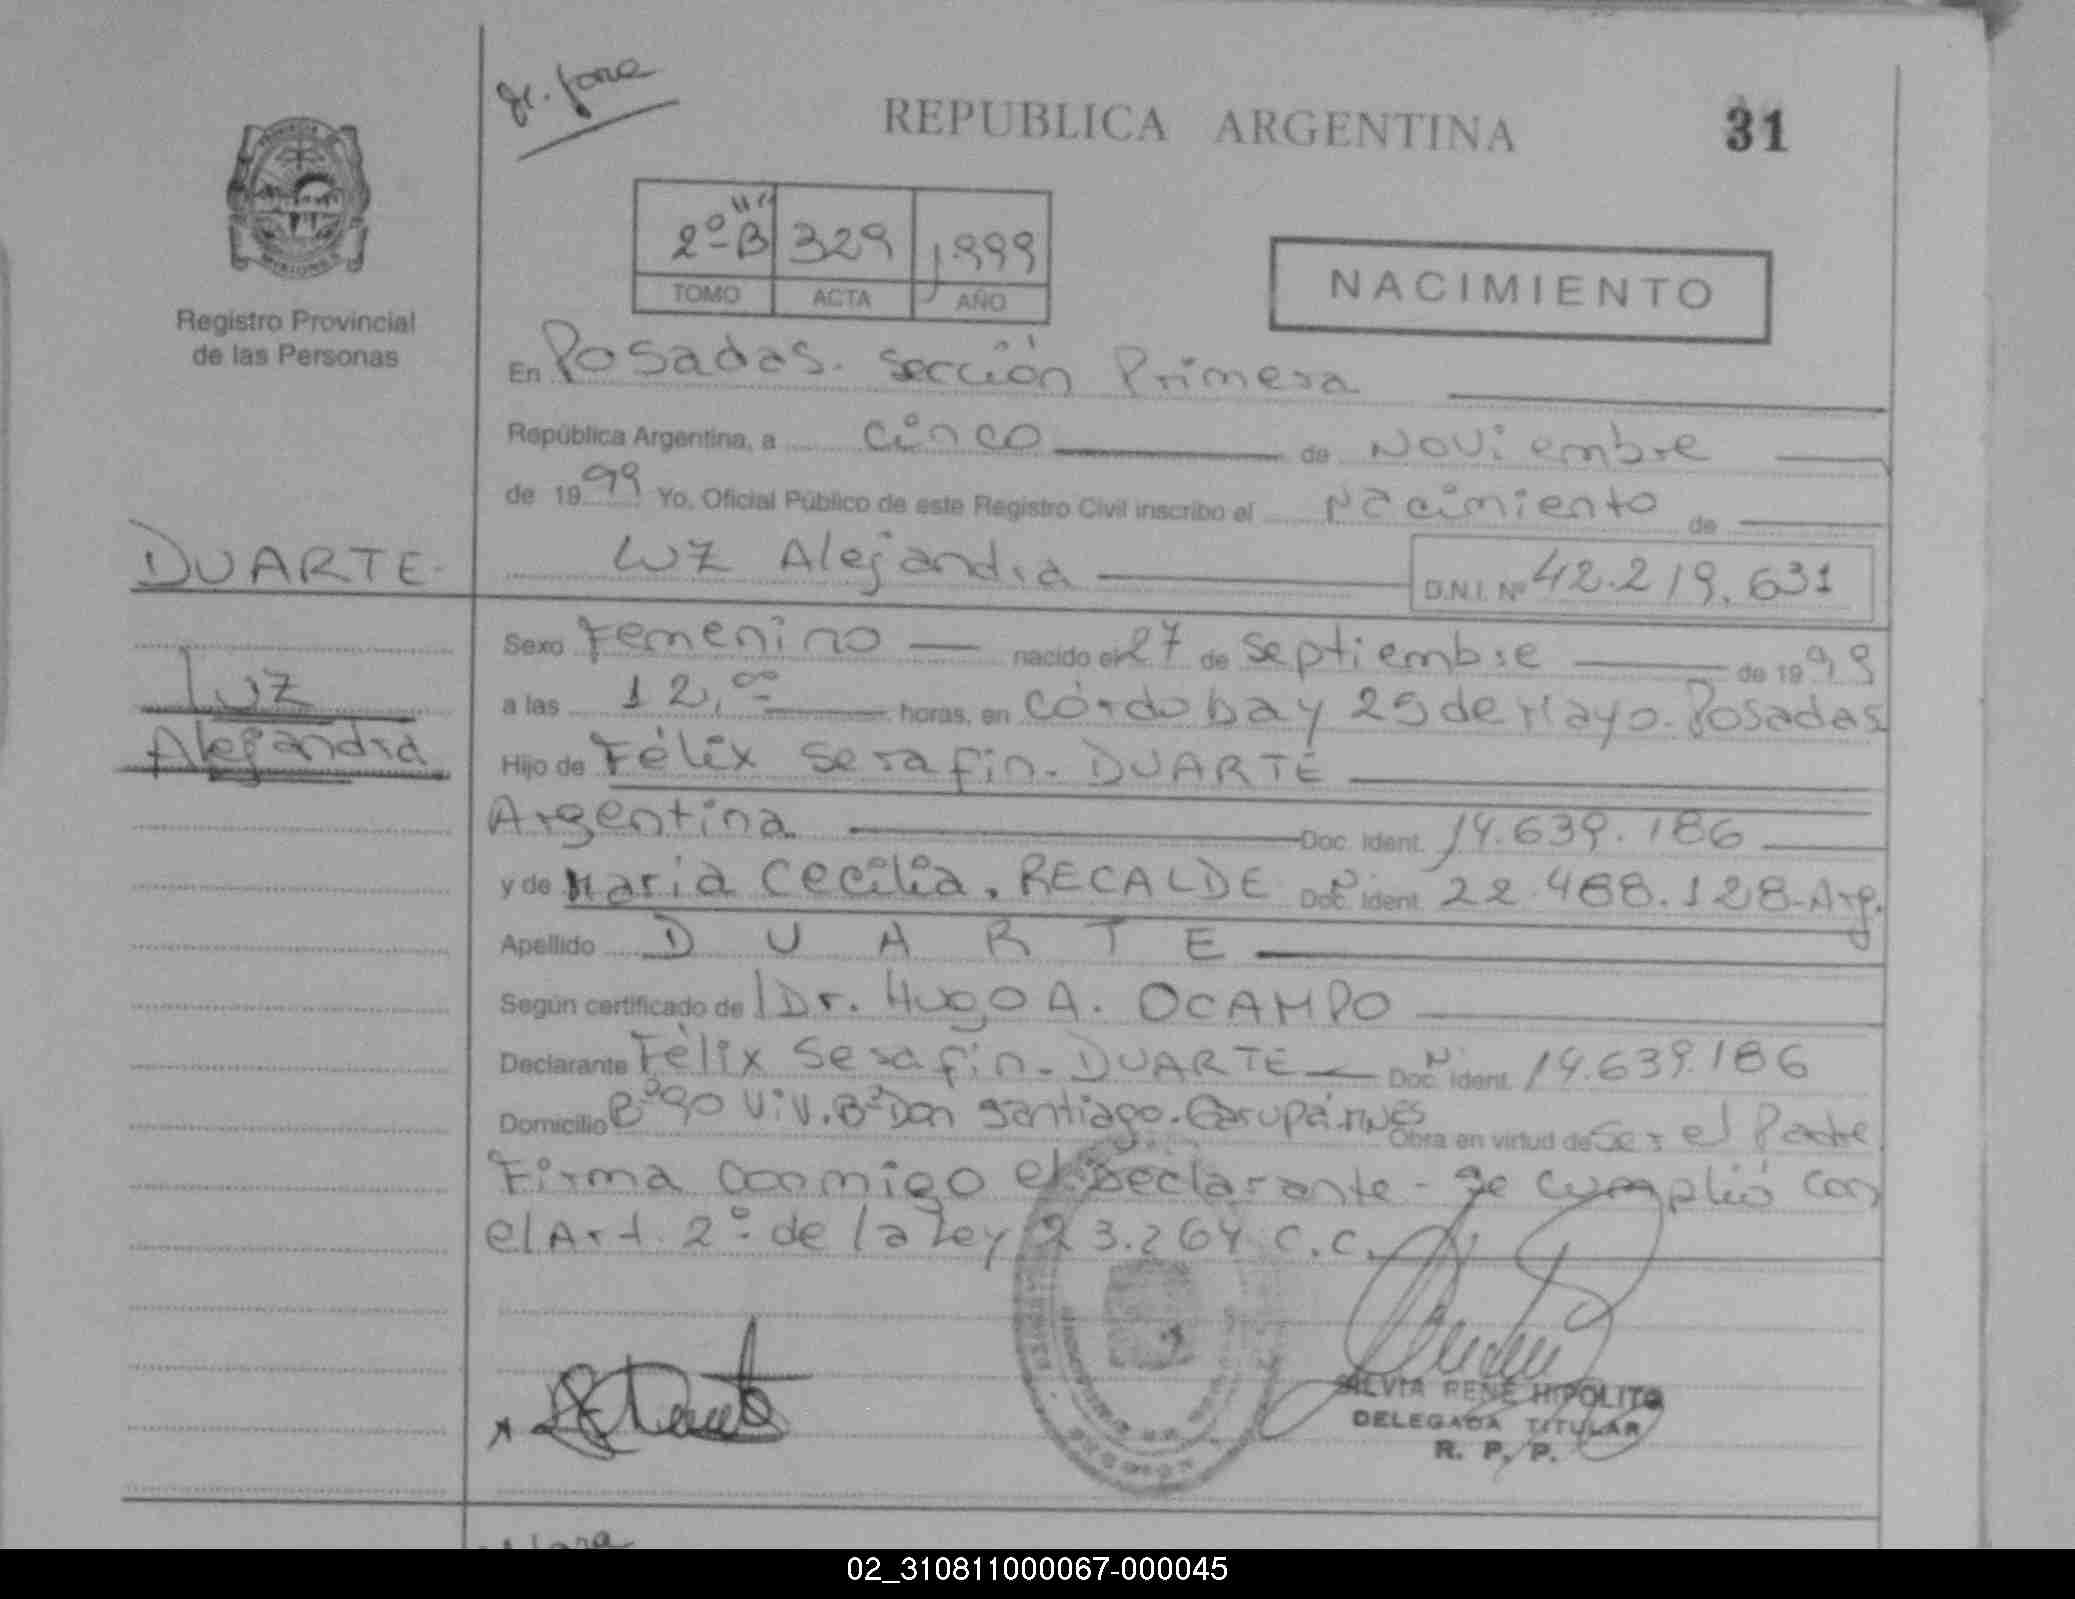 REPUBLICA ARGENTINA 31
2º "B" 329 1.999
TOMO ACTA AÑO
NACIMIENTO
Registro Provincial
de las Personas
En Posadas. sección Primera
República Argentina, a cinco de Noviembre
de 1999 Yo, Oficial Público de este Registro Civil inscribo el Nacimiento de
DUARTE. Luz Alejandra D.N.I. Nº 42.219.631
Sexo Femenino nacido el 27 de septiembre de 1999
Luz
a las 12,00 horas, en Córdoba y 25 de Mayo. Posadas
Alejandra
Hijo de Félix Serafín. DUARTE
Argentina Doc. Ident. 14.639.186
y de María Cecilia. RECALDE Doc. Ident. 22.488.128-Arg.
Apellido DUARTE
Según certificado de l Dr. Hugo A. OCAMPO
Declarante Félix Serafín. DUARTE Doc. Ident. 14.639.186
Domicilio Bº 90 Viv. Bº Don Santiago. Garupá. Mnes Obra en virtud de Ser el Padre
Firma conmigo el Declarante - Se cumplió con
el Art. 2º de la Ley 23.264 C.C.
SILVIA RENE HIPOLITO
DELEGADA TITULAR
R. P. P.
02_310811000067-000045